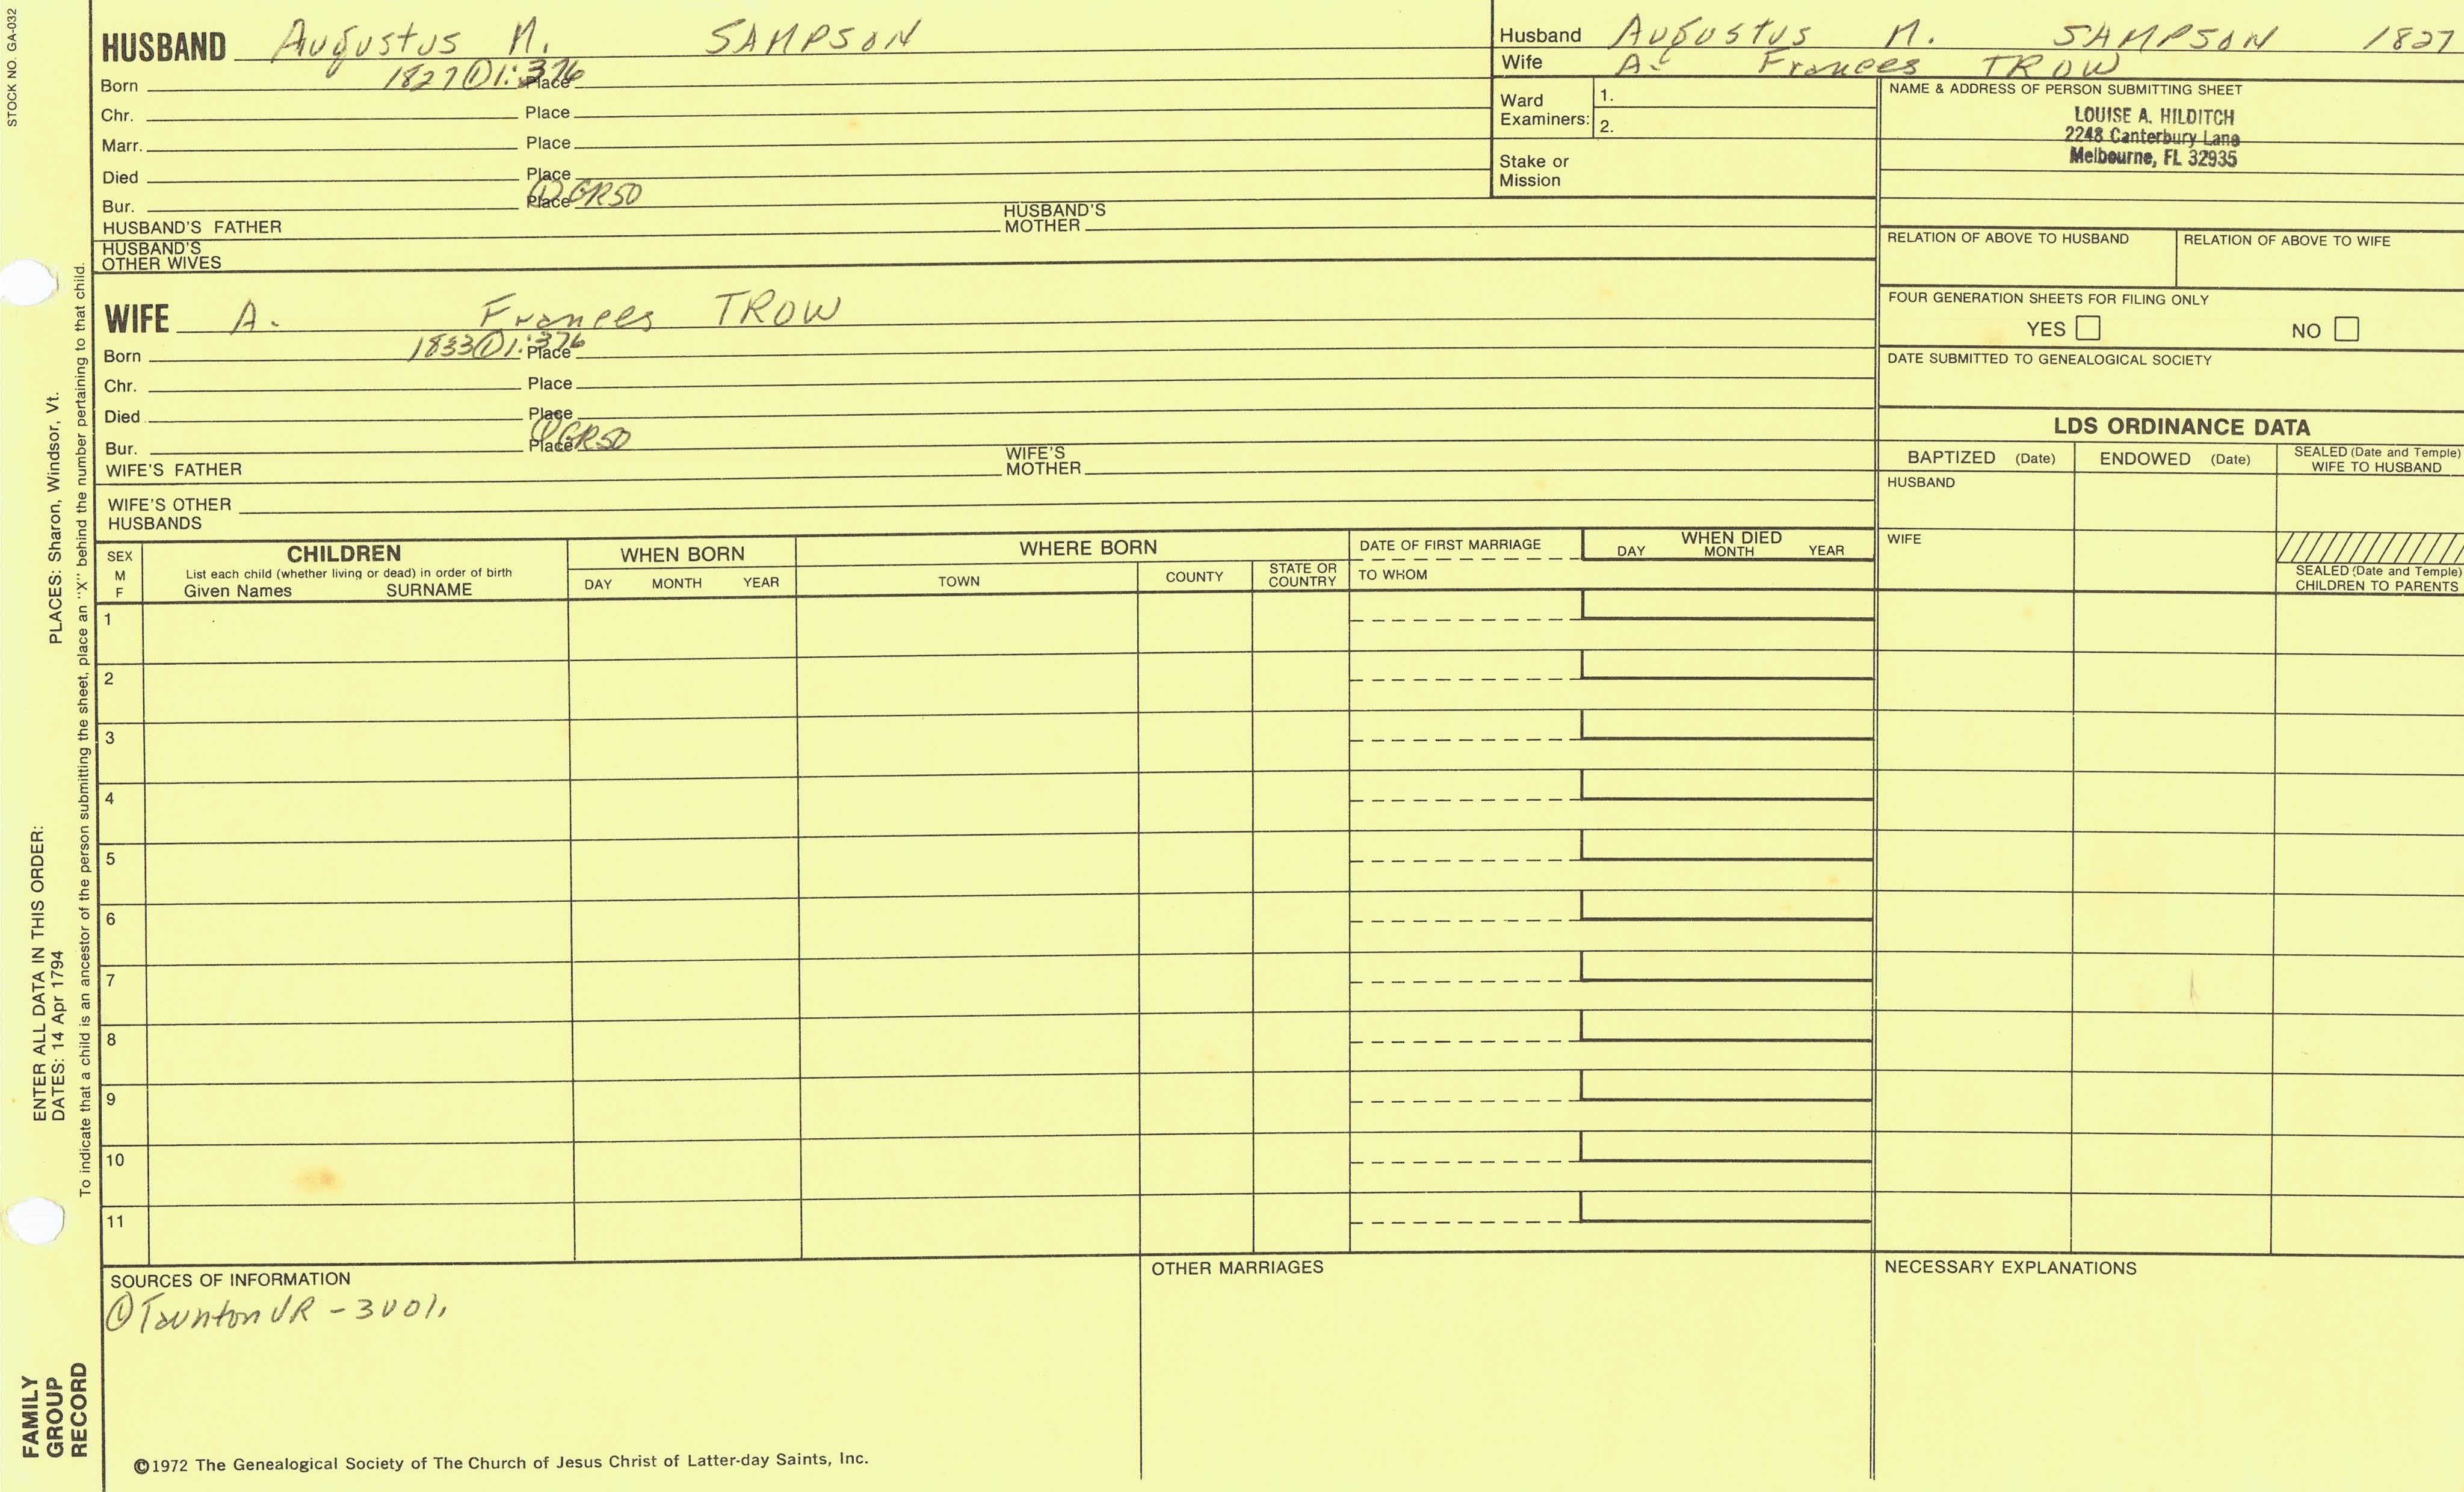 STOCK NO. GA-032
HUSBAND Augustus M. SAMPSON
Born 1827 ① 1:376 Place
Chr. Place
Marr. Place
Died Place
Bur. Place ① GR50
HUSBAND'S FATHER HUSBAND'S MOTHER
HUSBAND'S OTHER WIVES
Husband Augustus M. SAMPSON 1827
Wife A. Frances TROW
Ward Examiners: 1.
2.
Stake or Mission
NAME & ADDRESS OF PERSON SUBMITTING SHEET
LOUISE A. HILDITCH
2248 Canterbury Lane
Melbourne, FL 32935
RELATION OF ABOVE TO HUSBAND RELATION OF ABOVE TO WIFE
FOUR GENERATION SHEETS FOR FILING ONLY
YES NO
DATE SUBMITTED TO GENEALOGICAL SOCIETY
WIFE A. Frances TROW
Born 1833 ① 1:376 Place
Chr. Place
Died Place
Bur. Place ① GR50
WIFE'S FATHER WIFE'S MOTHER
WIFE'S OTHER HUSBANDS
LDS ORDINANCE DATA
BAPTIZED (Date) ENDOWED (Date) SEALED (Date and Temple) WIFE TO HUSBAND
HUSBAND
WIFE
SEALED (Date and Temple) CHILDREN TO PARENTS
SEX M F
CHILDREN
List each child (whether living or dead) in order of birth
Given Names SURNAME
WHEN BORN
DAY MONTH YEAR
WHERE BORN
TOWN COUNTY STATE OR COUNTRY
DATE OF FIRST MARRIAGE
TO WHOM
WHEN DIED
DAY MONTH YEAR
1
2
3
4
5
6
7
8
9
10
11
SOURCES OF INFORMATION
① Taunton VR - 3 vol.
OTHER MARRIAGES
NECESSARY EXPLANATIONS
©1972 The Genealogical Society of The Church of Jesus Christ of Latter-day Saints, Inc.
ENTER ALL DATA IN THIS ORDER:
DATES: 14 Apr 1794 PLACES: Sharon, Windsor, Vt.
To indicate that a child is an ancestor of the person submitting the sheet, place an "X" behind the number pertaining to that child.
FAMILY
GROUP
RECORD